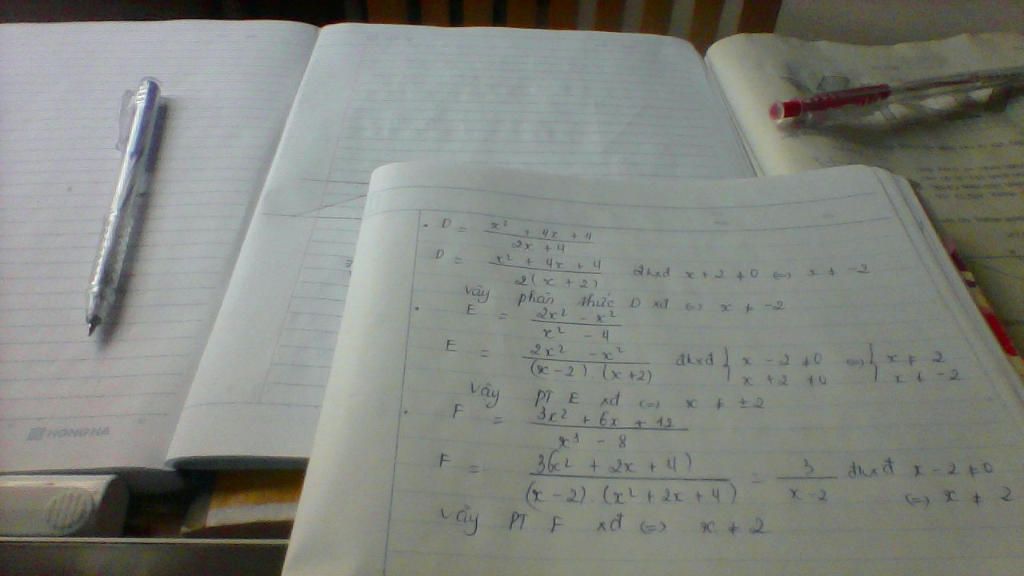 . D = x² + 4x + 4 / 2x + 4
D = x² + 4x + 4 / 2(x + 2) đkxđ x + 2 ≠ 0 ⇔ x ≠ -2
Vậy phân thức D xđ ⇔ x ≠ -2
. E = 2x² - x² / x² - 4
E = 2x² - x² / (x - 2).(x + 2) đkxđ { x - 2 ≠ 0 x + 2 ≠ 0 ⇔ { x ≠ 2 x ≠ -2
Vậy PT E xđ ⇔ x ≠ ±2
. F = 3x² + 6x + 12 / x³ - 8
F = 3(x² + 2x + 4) / (x - 2).(x² + 2x + 4) = 3 / x - 2 đkxđ x - 2 ≠ 0
⇔ x ≠ 2
Vậy PT F xđ ⇔ x ≠ 2
HONG HA